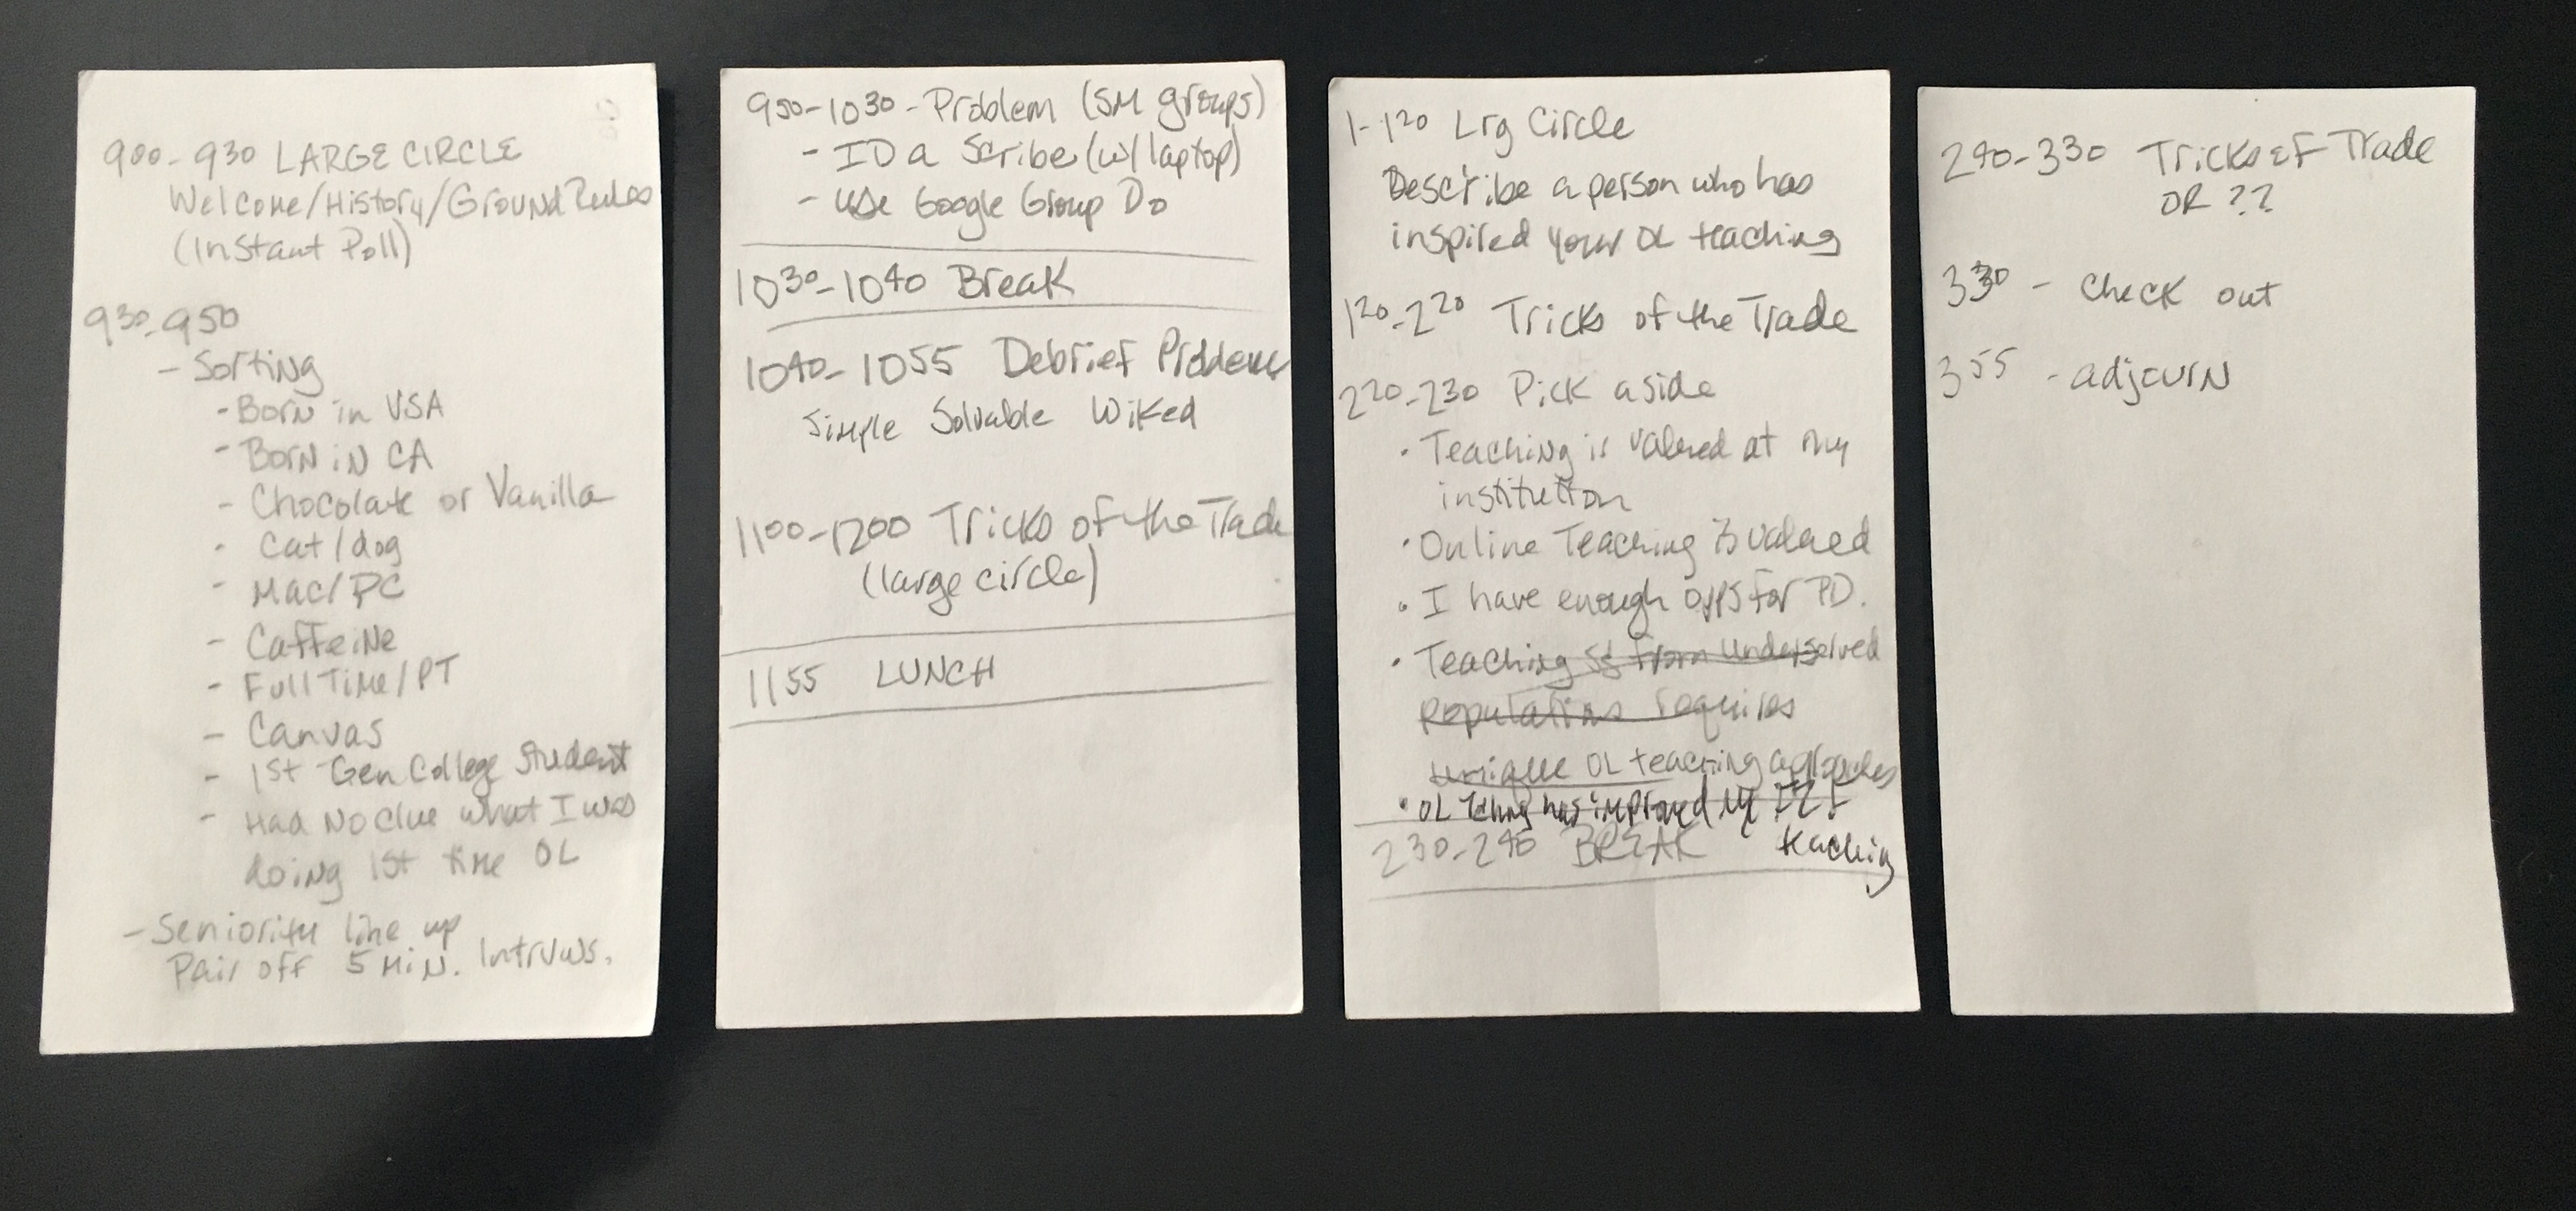 900-930 LARGE CIRCLE
Welcome/History/Ground Rules
(Instant Poll)
930-950
- Sorting
- Born in USA
- Born in CA
- Chocolate or Vanilla
- Cat/dog
- Mac/PC
- Caffeine
- Full Time/PT
- Canvas
- 1st Gen College Student
- Had No clue what I was
doing 1st time OL
- Seniority line up
Pair off 5 min. Intrvws.
950-1030 - Problem (SM groups)
- ID a Scribe (w/ laptop)
- Use Google Group Do
1030-1040 Break
1040-1055 Debrief Problems
Simple Solvable Wiked
1100-1200 Tricks of the Trade
(large circle)
1155 LUNCH
1-120 Lrg Circle
Describe a person who has
inspired your OL teaching
120-220 Tricks of the Trade
220-230 Pick a side
• Teaching is valued at my
institution
• Online Teaching is valued
• I have enough opps for PD.
• Teaching Ss from underserved
Populations requires
unique OL teaching approaches
• OL Tching has improved my F2F
teaching
230-240 BREAK
240-330 Tricks of Trade
OR ??
330 - Check out
355 - adjourn